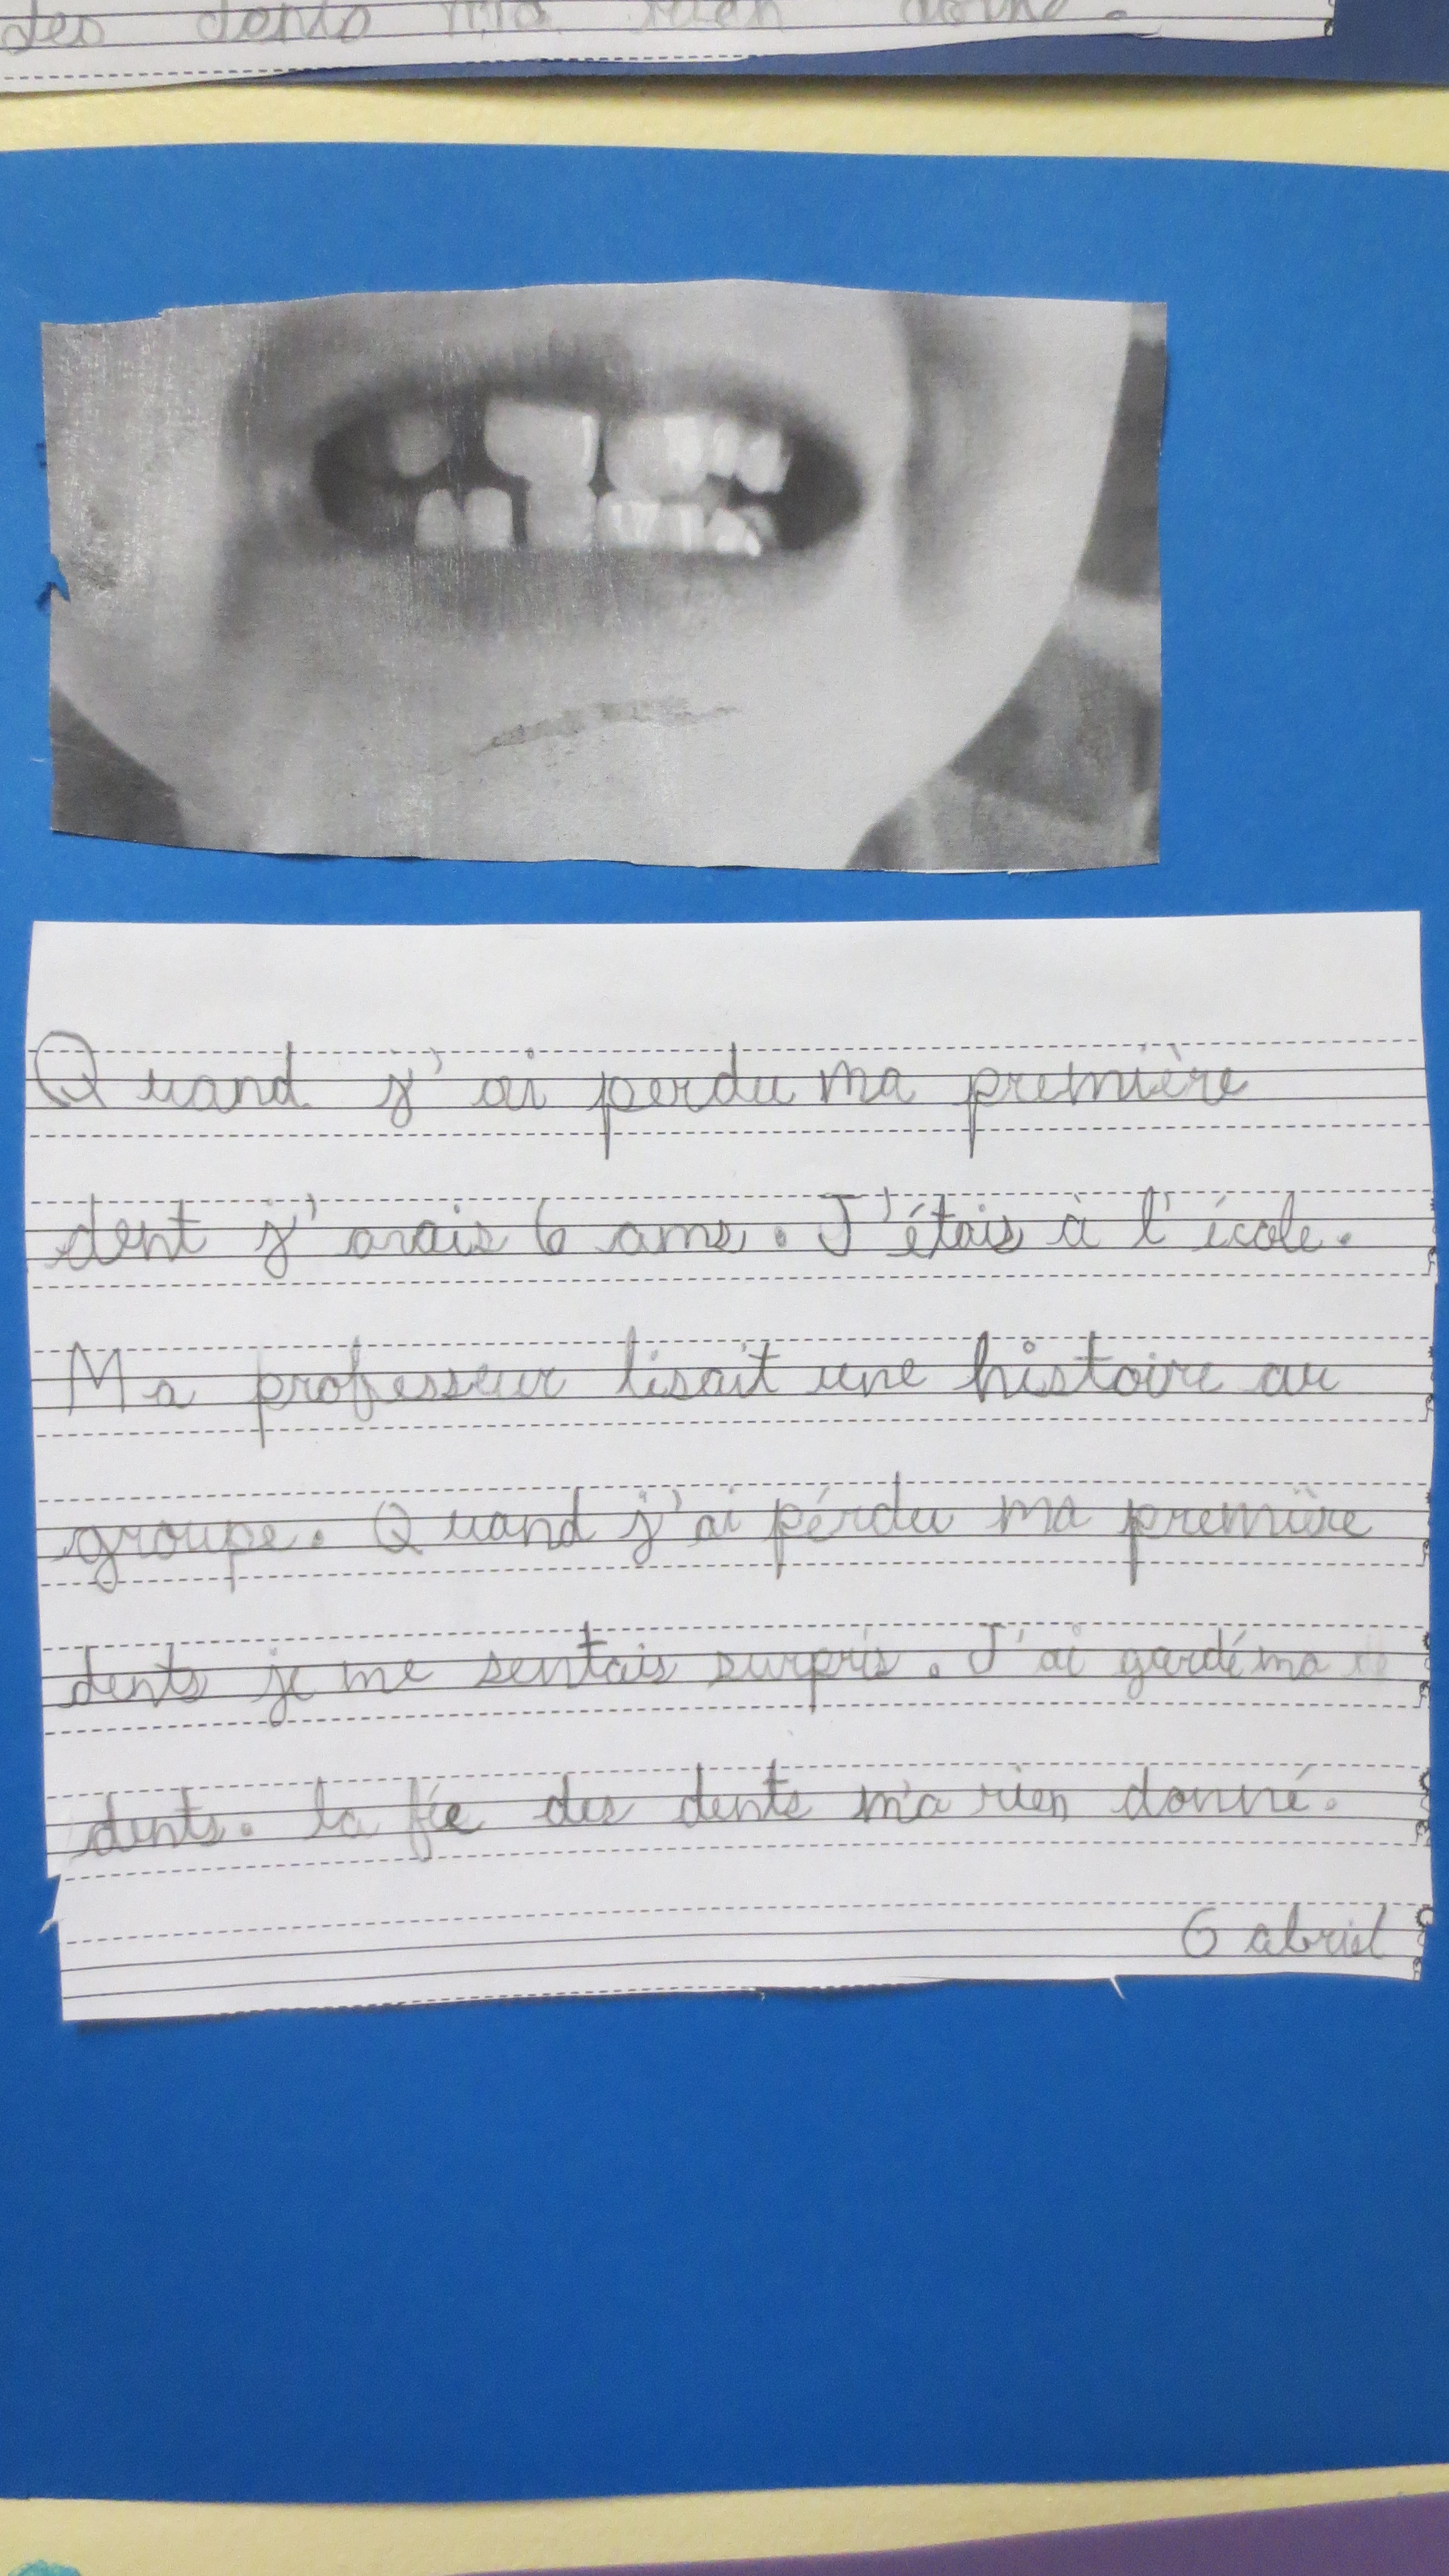 des dents m'a rien donné.
Quand j'ai perdu ma première
dent j'avais 6 ans. J'étais à l'école.
Ma professeur lisait une histoire au
groupe. Quand j'ai pérdu ma première
dents je me sentais surpris. J'ai gardé ma
dents. la fée des dents m'a rien donné.
Gabriel